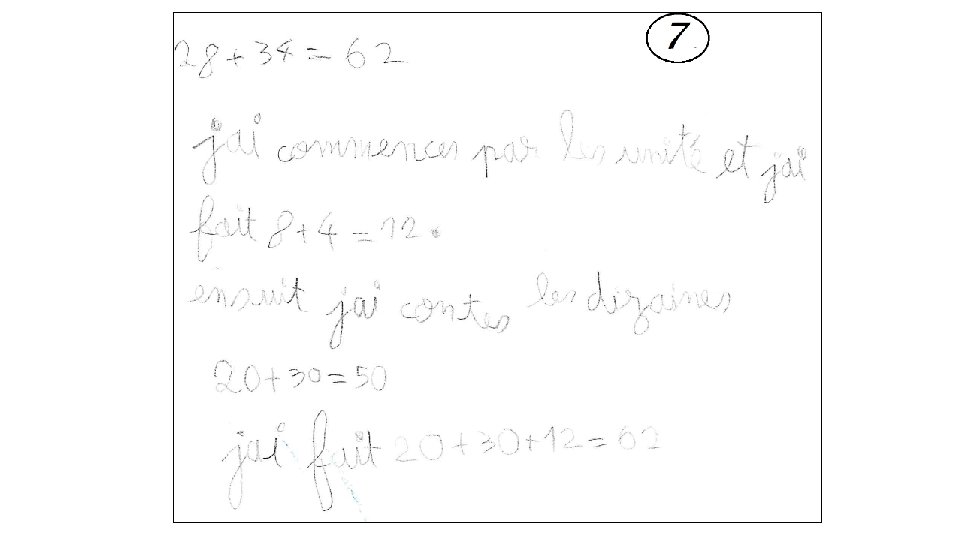 7
28+34=62
jai commences par les unité et jai
fait 8+4=12.
ensuit jai contes les dizaines
20+30=50
jai fait 20+30+12=62